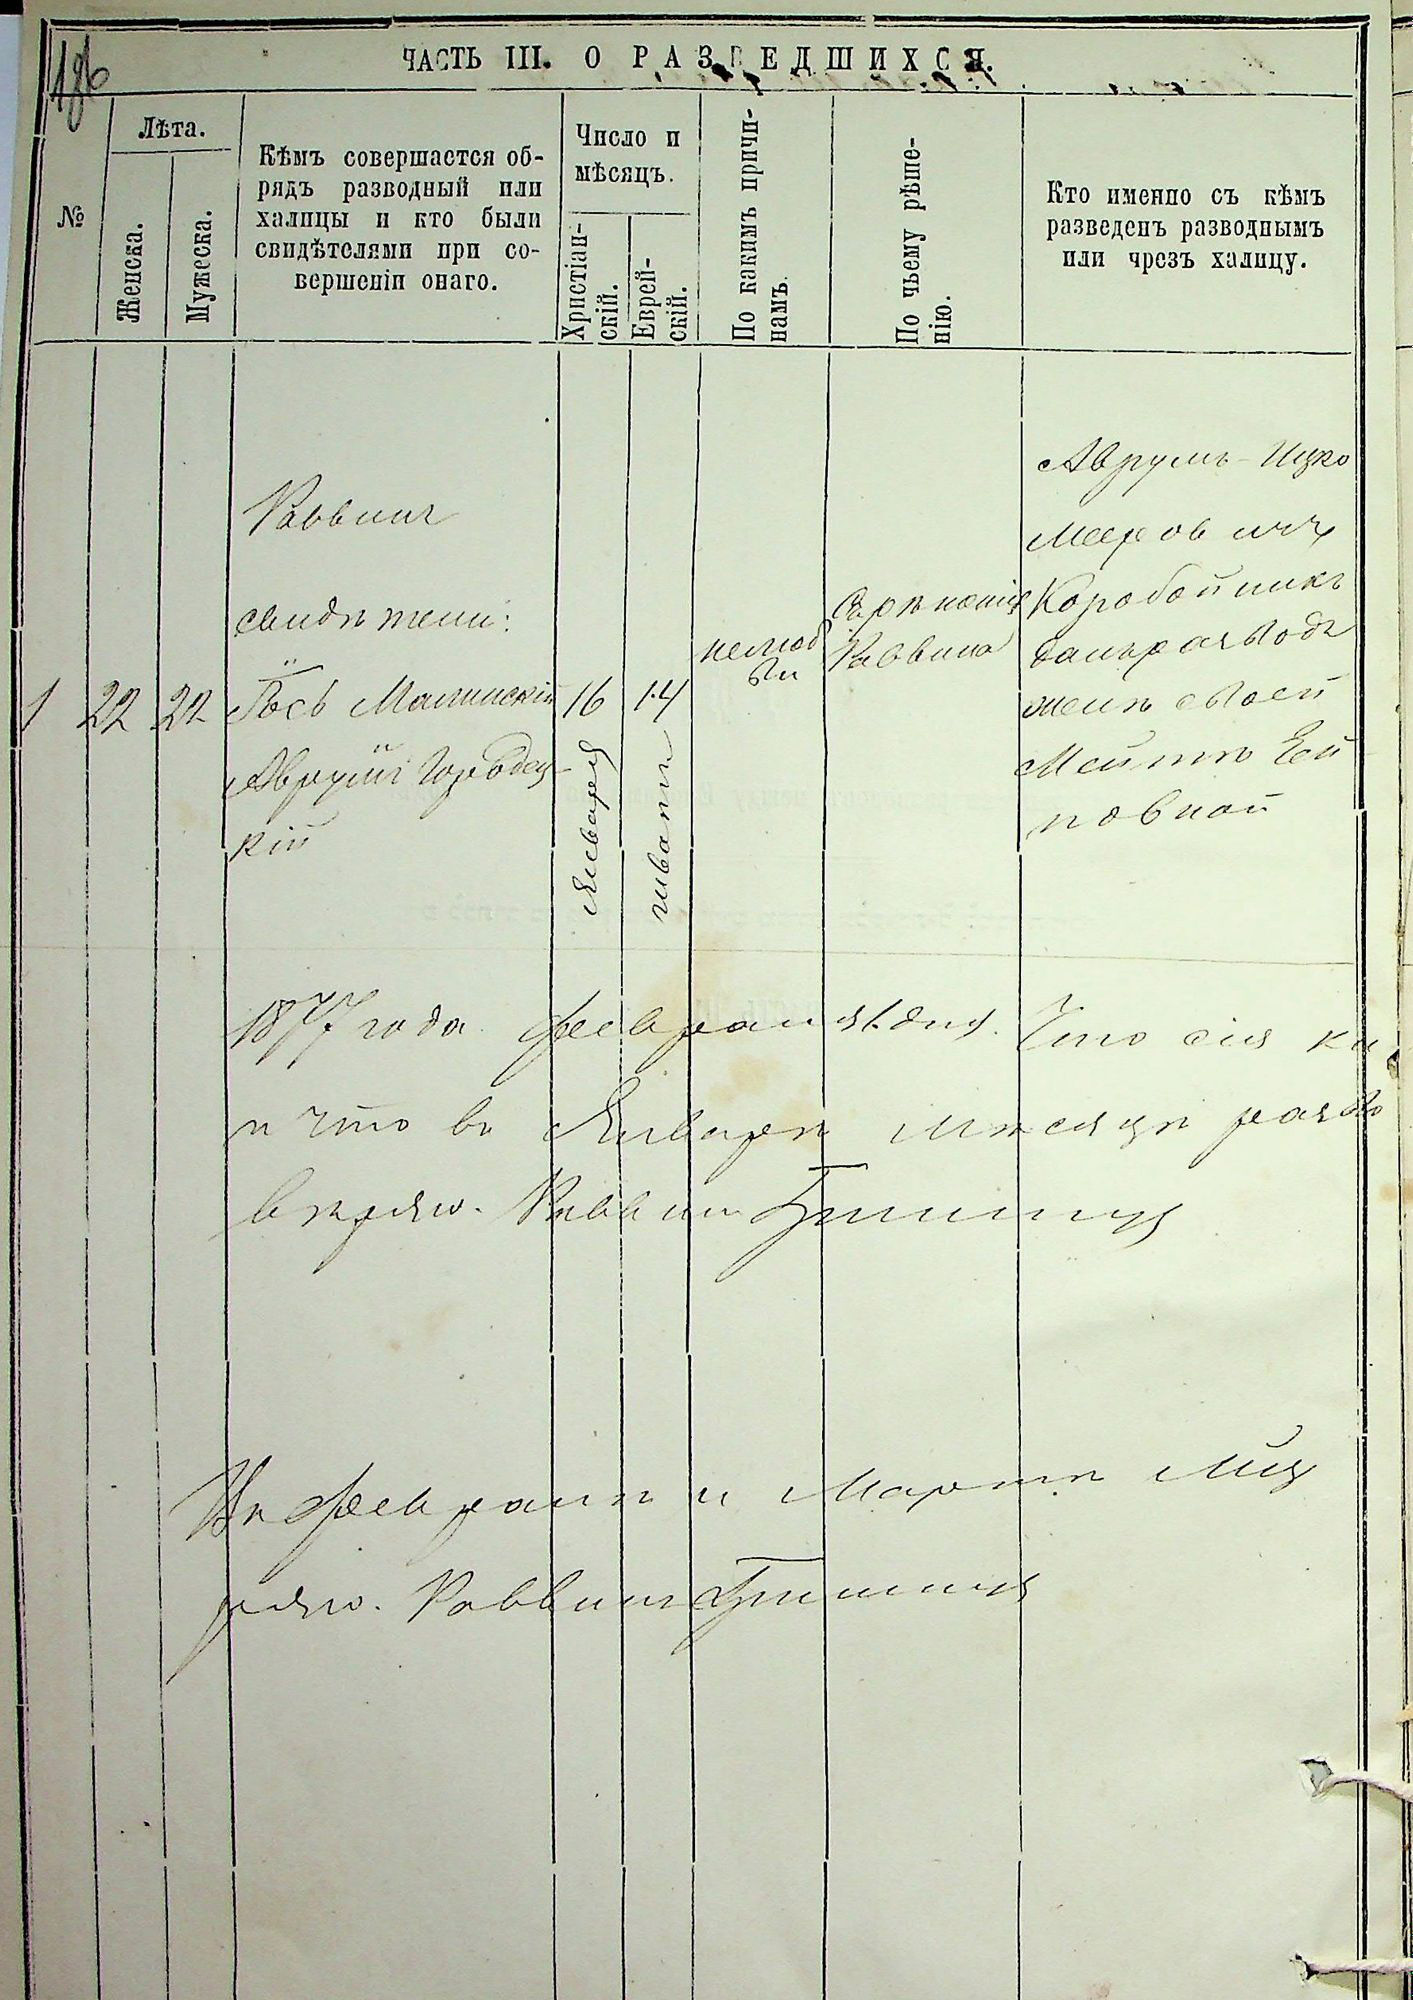 186
ЧАСТЬ III. О РАЗВЕДШИХСЯ.
№
Лѣта.
Женска.
Мужеска.
Кѣмъ совершается об-
рядъ разводный или
халицы и кто были
свидѣтелями при со-
вершеніи онаго.
Число и
мѣсяцъ.
Христіан-
скій.
Еврей-
скій.
По какимъ причи-
намъ.
По чьему рѣше-
нію.
Кто именно съ кѣмъ
разведенъ разводнымъ
или чрезъ халицу.
1
22
22
Раввинъ
свидѣтели:
Іось Малинскій
Аврумъ Городец-
кій
16
Января
14
шватъ
нелюб
ви
Раввина
Аврумъ-Ицко
Мееровичъ
Коробойникъ
далъ разводъ
женѣ своей
1877 года февраля 1 дня. Что сія кни
и что въ Январѣ мѣсяцѣ разво
вѣряю. Раввинъ
Въ Февралѣ и Мартѣ
ряю. Раввинъ